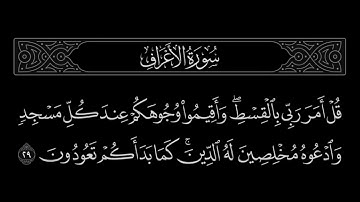 سُورَةُ الأَعْرَافِ
قُلْ أَمَرَ رَبِّي بِالْقِسْطِ ۖ وَأَقِيمُوا وُجُوهَكُمْ عِندَ كُلِّ مَسْجِدٍ
وَادْعُوهُ مُخْلِصِينَ لَهُ الدِّينَ ۚ كَمَا بَدَأَكُمْ تَعُودُونَ ٢٩